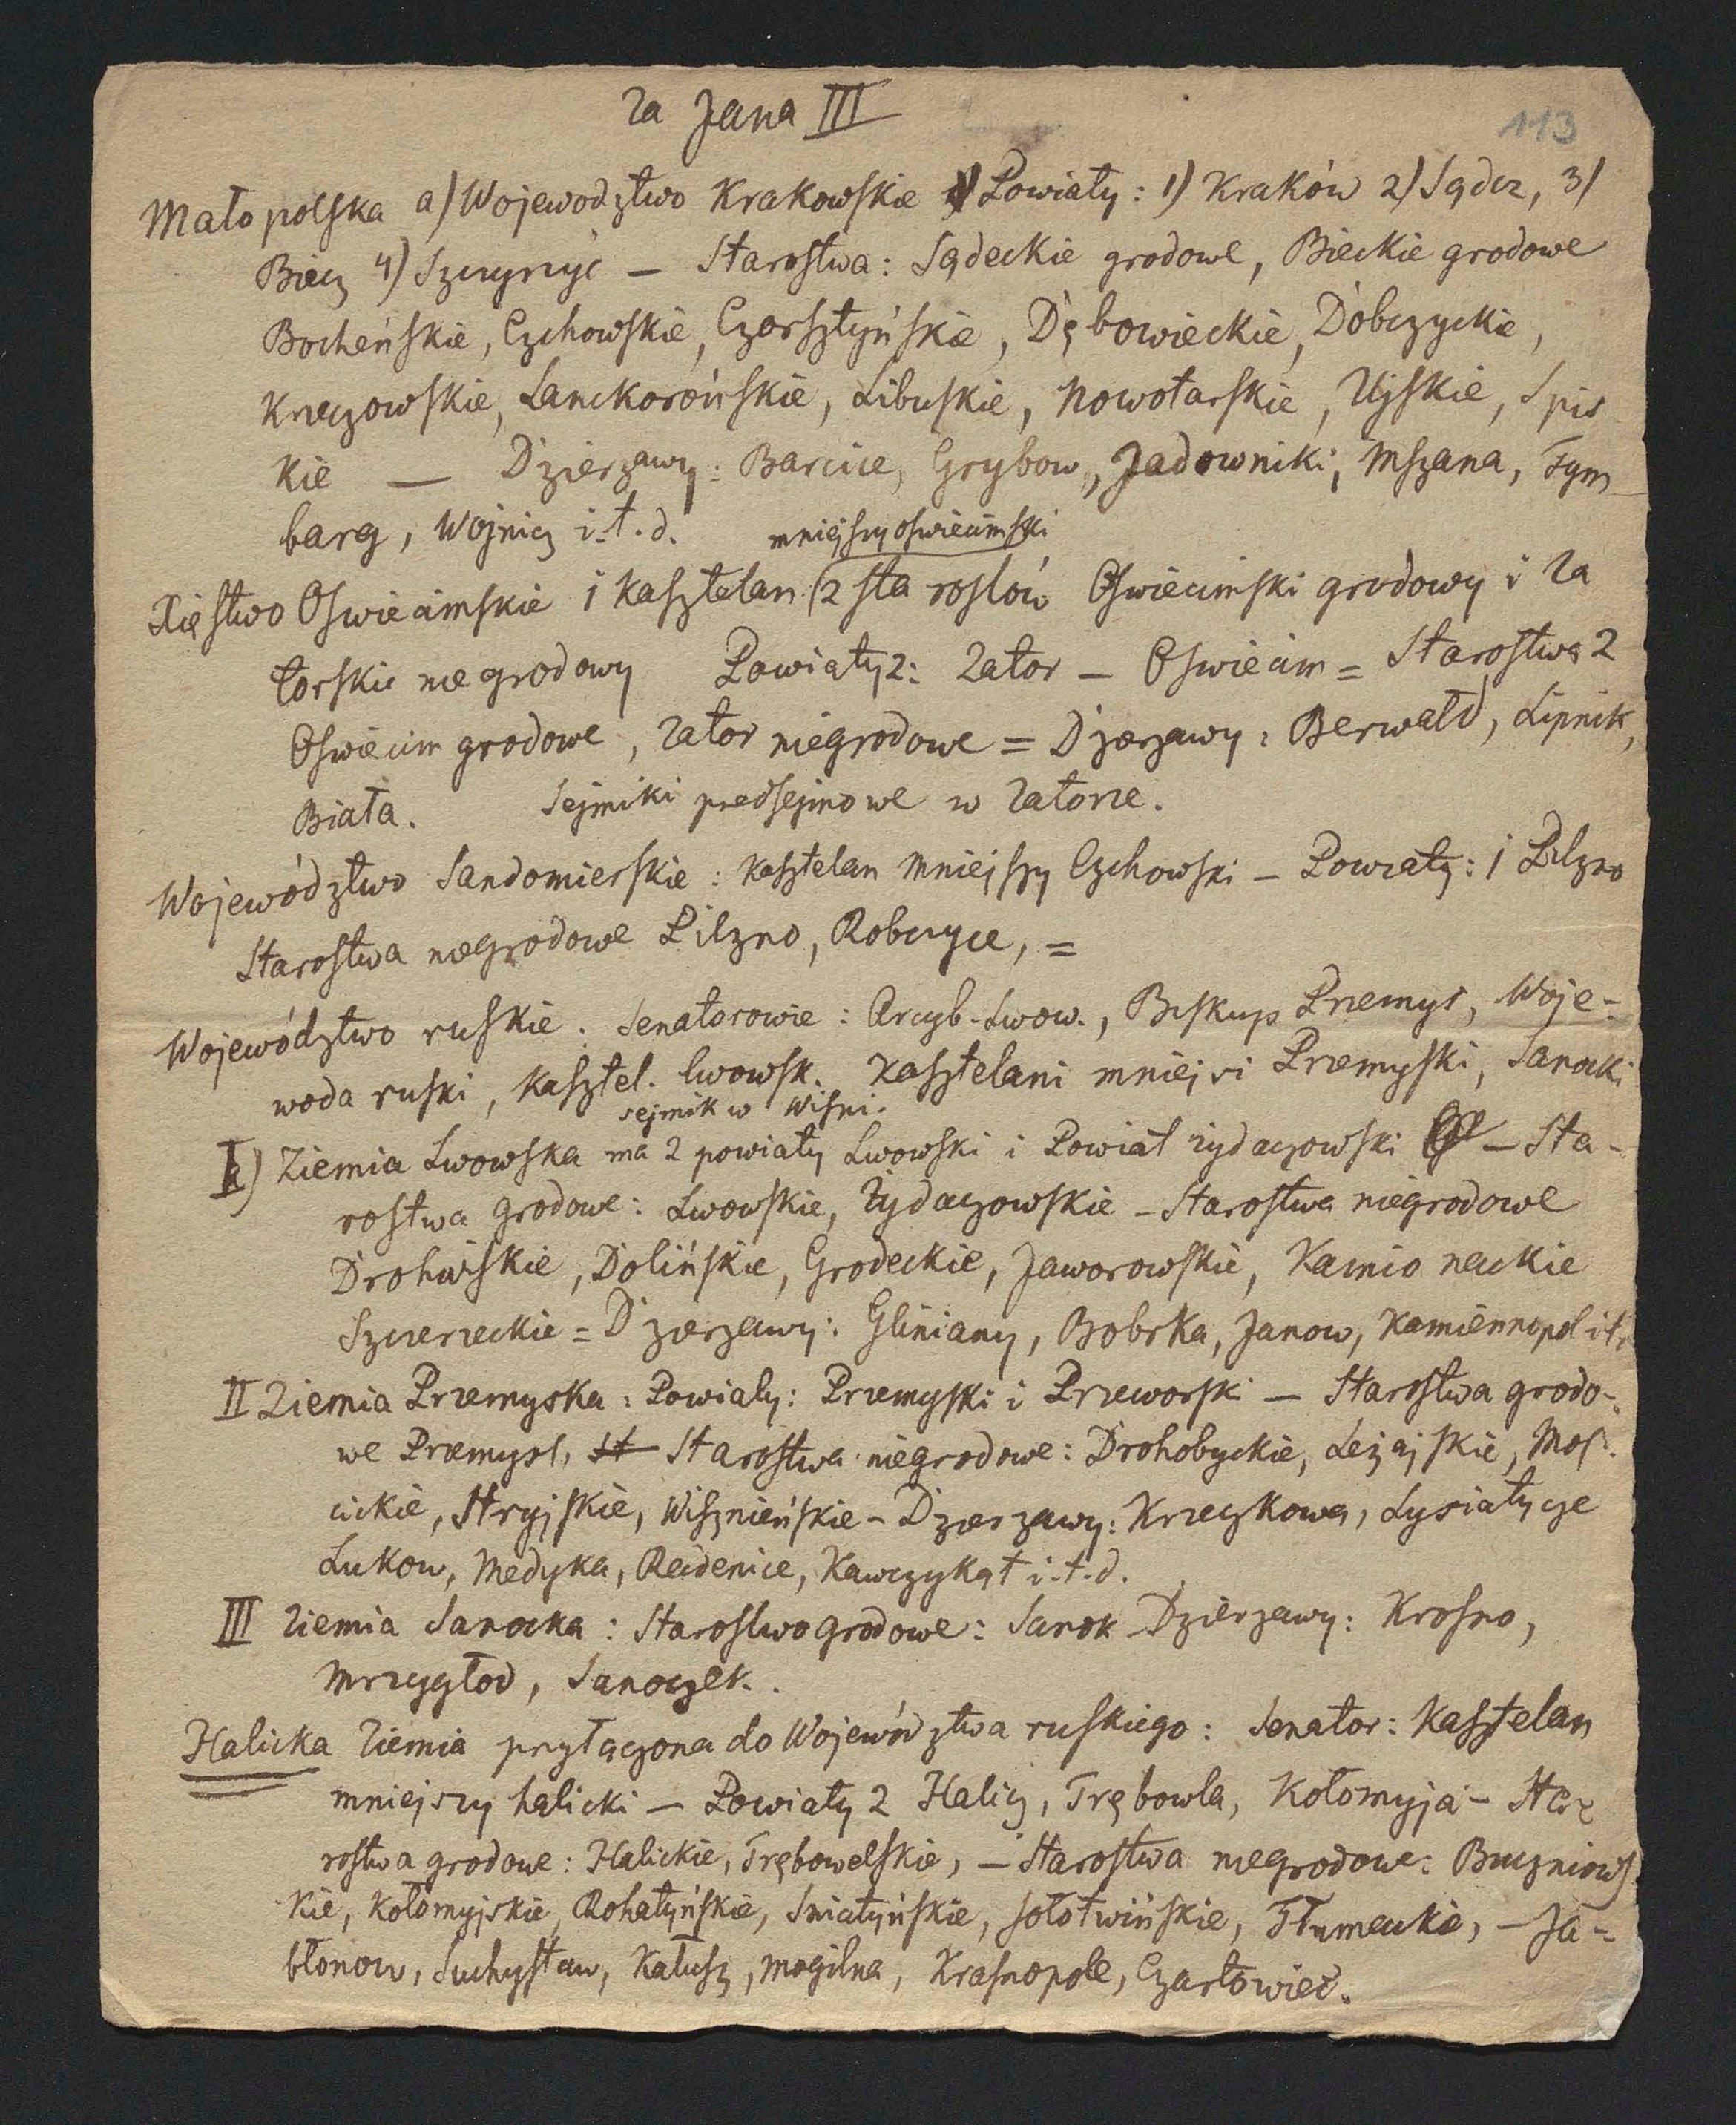 Za Jana III
113
Małopolska a) Wojewodztwo Krakowskie Powiaty: 1) Kraków 2) Sądcz, 3)
Biecz 4) Szczyrzyć — Starostwa: Sądeckie grodowe, Bieckie grodowe
Bocheńskie, Czchowskie, Czorsztyńskie, Dębowieckie, Dobczyckie,
Kreczowskie, Lanckorońskie, Libuskie, Nowotarskie, Ujskie, Spis
kie — Dzierzawy: Barcice, Grybow, Jadowniki, Mszana, Tym
barg, Wojnicz i.t.d.
mniejszy oswiecimski
Xięstwo Oswiecimskie 1 Kasztelan (2 starostów Oswiecimski grodowy i Za
torski niegrodowy Powiaty 2: Zator — Oswiecim = Starostwa 2
Oswiecim grodowe, Zator niegrodowe = Dzierzawy: Berwałd, Lipnik,
Biała. Sejmiki predsejmowe w Zatorze.
Województwo Sandomierskie: Kasztelan mniejszy Czchowski — Powiaty: 1 Pilzno
Starostwa niegrodowe Pilzno, Robczyce, =
Województwo ruskie. Senatorowie: Arcyb. Lwow., Biskup Przemys, Woje-
woda ruski, Kasztel. lwowsk. Kasztelani mniejsi Przemyski, Sanocki
sejmik w Wiszni.
I) Ziemia Lwowska ma 2 powiaty Lwowski i Powiat zydaczowski — Sta-
rostwa grodowe: Lwowskie, Zydaczowskie — Starostwa niegrodowe
Drohuiskie, Dolińskie, Grodeckie, Jaworowskie, Kamioneckie
Szczerzeckie = Dzierzawy: Gliniany, Bobrka, Janow, Kamiennopol it.
II Ziemia Przemyska: Powiaty: Przemyski i Przeworski — Starostwa grodo-
we Przemysl, st Starostwa niegrodowe: Drohobyckie, Leżajskie, Mos-
cickie, Stryjskie, Wisznieńskie — Dzierzawy: Krzeczkowa, Lysiatycze
Lukow, Medyka, Radenice, Kawczykąt i.t.d.
III Ziemia Sanocka: Starostwo grodowe: Sanok Dzierzawy: Krosno,
Mrzygłod, Sanoczek.
Halicka Ziemia przyłączona do Województwa ruskiego: Senator: Kasztelan
mniejszy halicki — Powiaty 2 Halicz, Trębowla, Kołomyja — Sta
rostwa grodowe: Halickie, Trębowelskie, — Starostwa niegrodowe: Buczniows
kie, Kołomyjskie, Rohatyńskie, Sniatyńskie, Sołotwińskie, Tłumackie, — Ja-
błonow, Suchystaw, Kałusz, Mogilna, Krasnopole, Czartowiec.